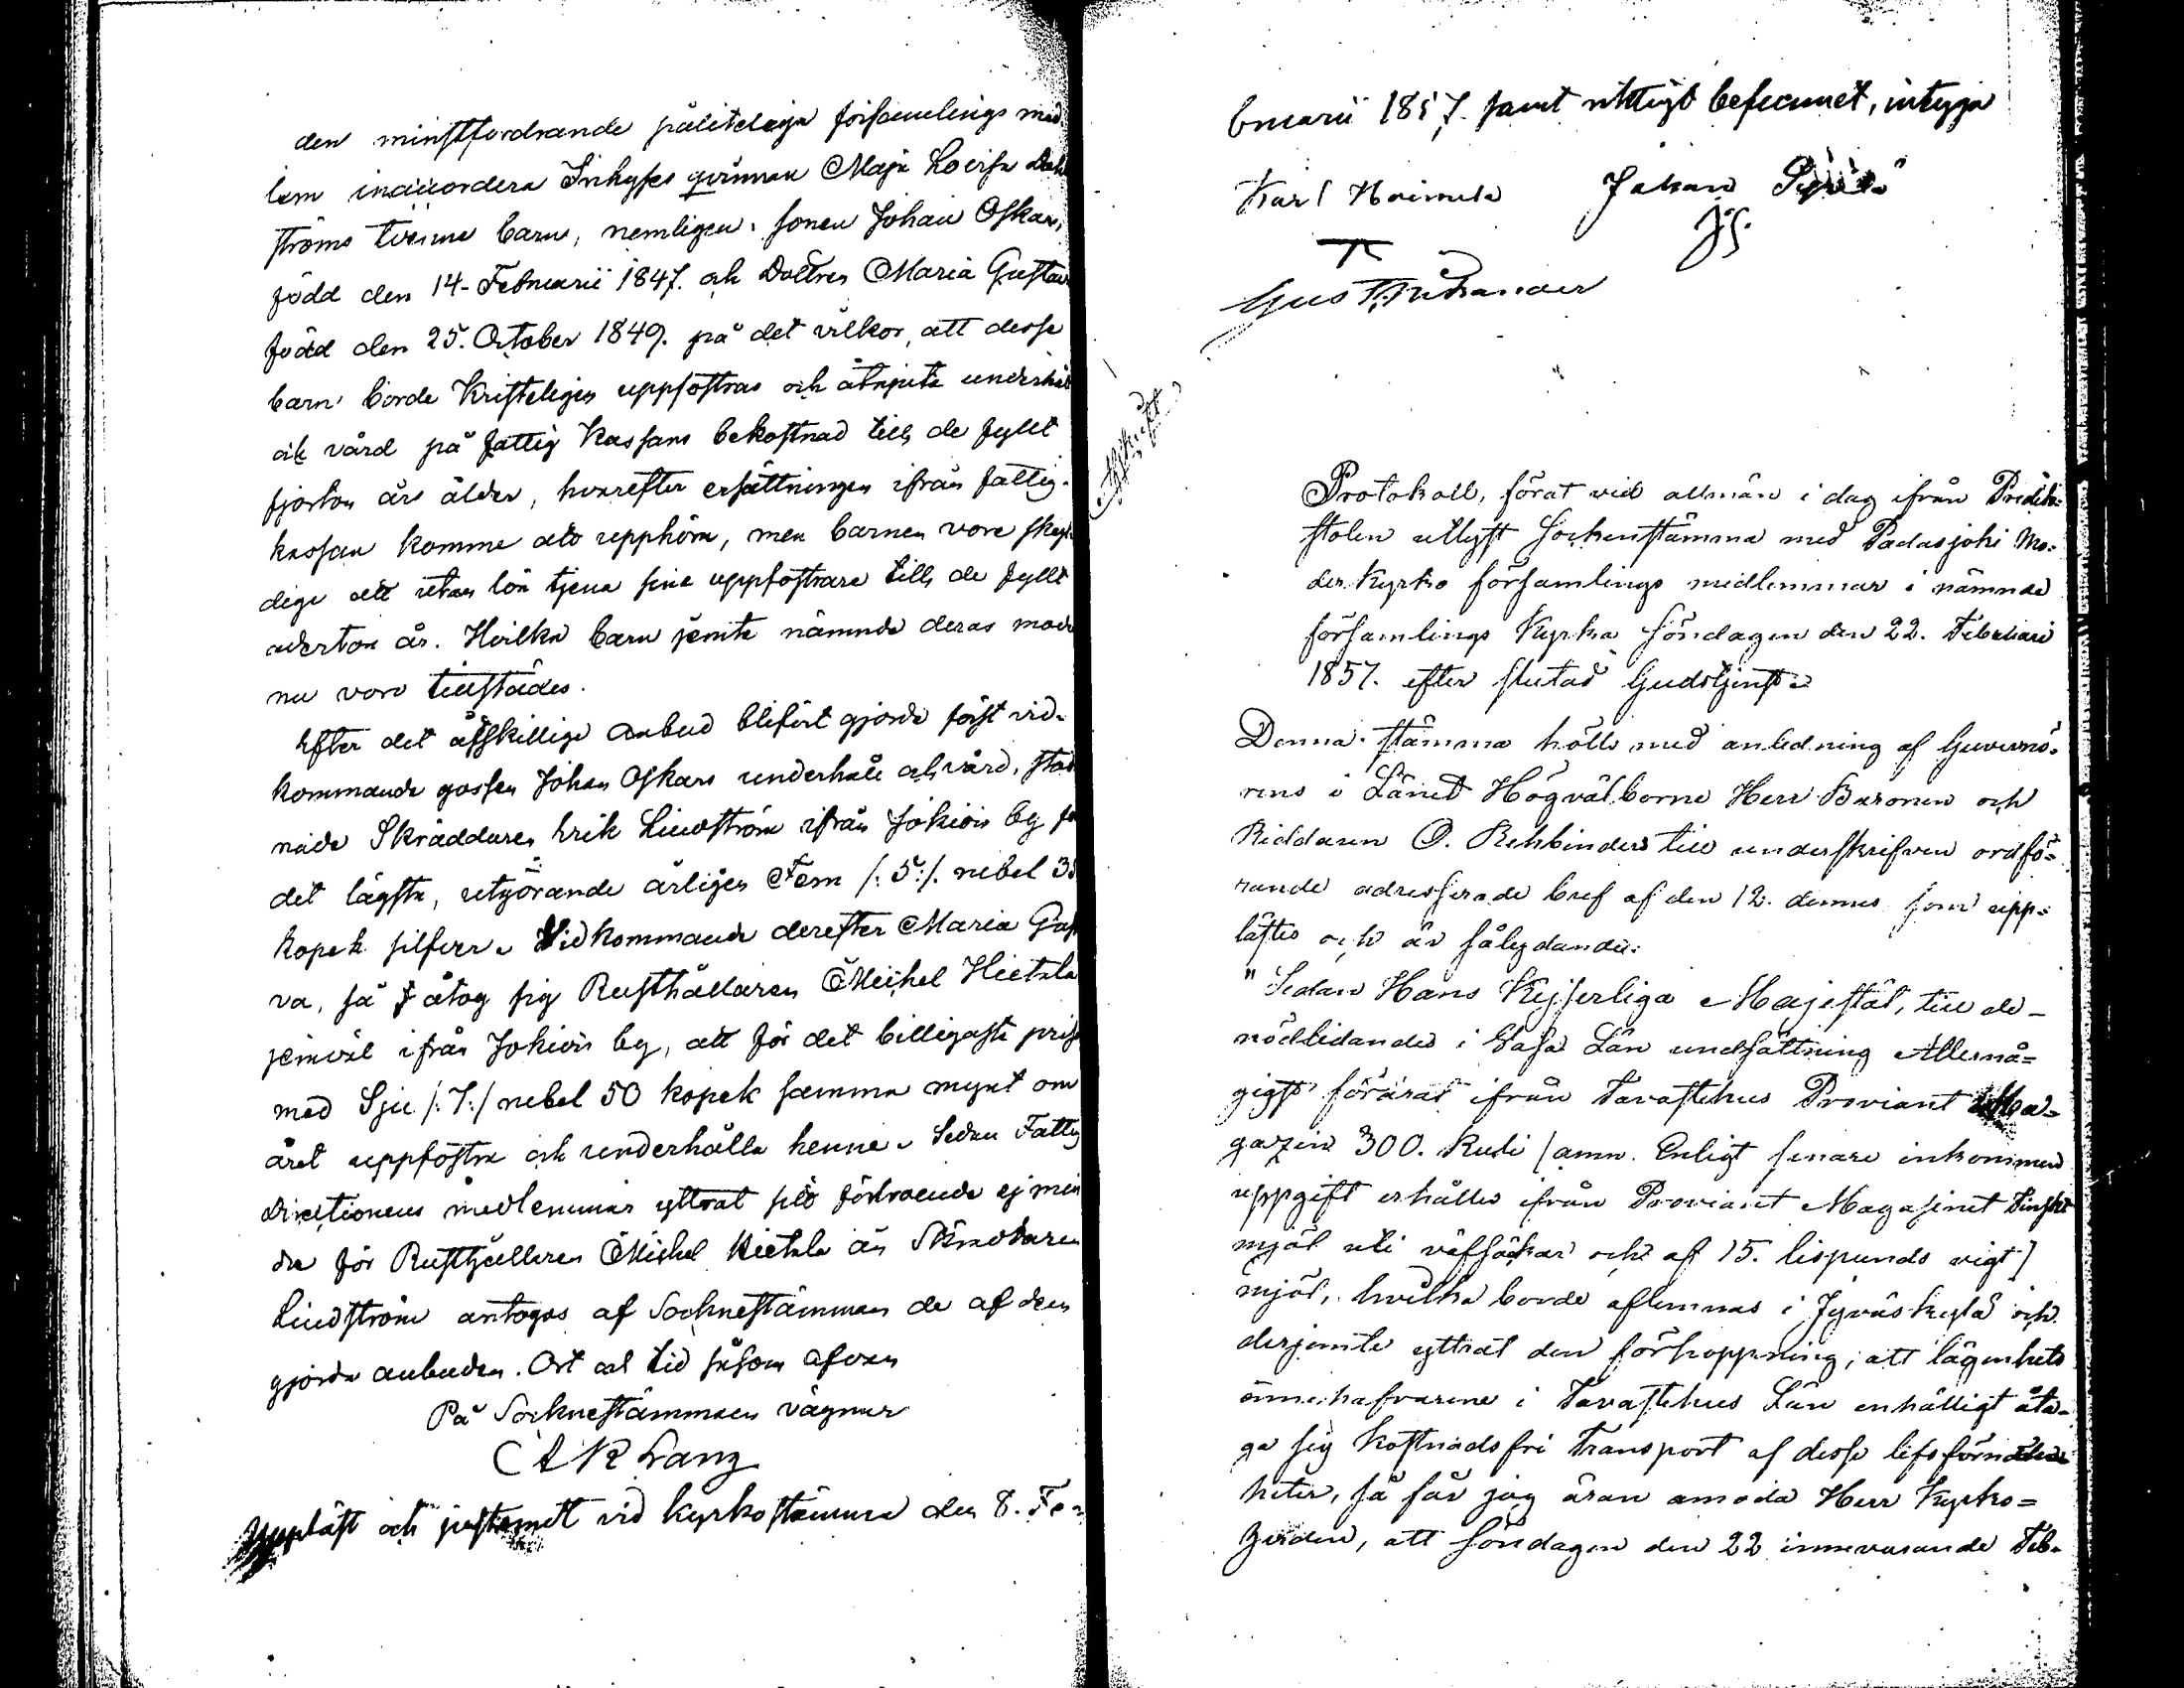 den minstfordrande pålitelige församlings med
lem inackordera Inhyses qvinnan Maja Lovisa
ströms tvenne barn, nemligen: sonen Johan Oskar,
född den 14. Februarii 1847. och Dottren Maria Gustav
född den 25. October 1849. på det vilkor, att desse
barn borde Kristeligen uppfostras och åtnjuta underhål
och vård på fattig Kassans bekostnad tills de fyllt
fjorton års ålder, hvarefter ersättningen ifrån fattig-
kassan komme att upphöra, men barnen vore skyl-
dige att utan lön tjena sine uppfostrare tills de fyllt
aderton år. Hvilka barn jemte nämnde deras moder
nu voro tillstädes.
Efter det åtskillige anbud blifvit gjorde först vid-
kommande gossen Johan Oskars underhåll och vård, stad
nade Skräddaren Erik Lindström ifrån Jokiois by för
det lägsta, utgörande årligen Fem /: 5 :/. rubel 3
kopek silfver. Vidkommande derefter Maria Gus
va, så åtog sig Rusthållaren Michel Hietala
jemväl ifrån Jokiois by, att för det billigaste pris
med Sju /: 7 :/ rubel 50 kopek samma mynt om
året uppfostra och underhålla henne. Sedan Fattig
directionens medlemmar yttrat sitt förtroende ej min
dre för Rusthållaren Michel Hietala än Skräddaren
Lindström antogos af Socknestämman de af dem
gjorda anbuden. Ort och tid såsom ofvan
På Socknestämmans vägnar
C A R Lang
Uppläst och justeradt vid kyrkostämma den 8. Fe-
bruarii 1857. samt riktigt befunnet, intyga
Karl Heimola Johan
Gust.
Afskrift
Protokoll, fördt vid allmän i dag ifrån Prediko-
stolen utlyst Sockenstämma med Padasjoki Mo-
der Kyrko församlings medlemmar i nämnde
församlings Kyrka Söndagen den 22. Februari
1857. efter slutad Gudstjenst.
Denna stämma hölls med anledning af Guvernö-
rens i Länet Högvälborne Herr Baronen och
Riddaren O. Rehbinders till underskrifven ordfö-
rande adresserade bref af den 12. dennes som upp-
lästes och är sålydande:
" Sedan Hans Kejserliga Majestät, till de
nödlidandes i Wasa Län undsättning Allernå-
digst förärat ifrån Tavastehus Proviant Ma-
gazin 300. Kuli /anm. Enligt senare inkommen
uppgift erhålles ifrån Proviant Magasinet
mjöl uti väfsäckar och af 15. lispunds vigt/
mjöl, hvilka borde aflemnas i Jyväskylä och
derjemte yttrat den förhoppning, att lägenhets
innehafvarene i Tavastehus Län enhälligt åta-
ga sig kostnadsfri Transport af desse lifsförnöden
heter, så får jag äran anmoda Herr Kyrko-
herden, att Söndagen den 22 innevarande Feb-